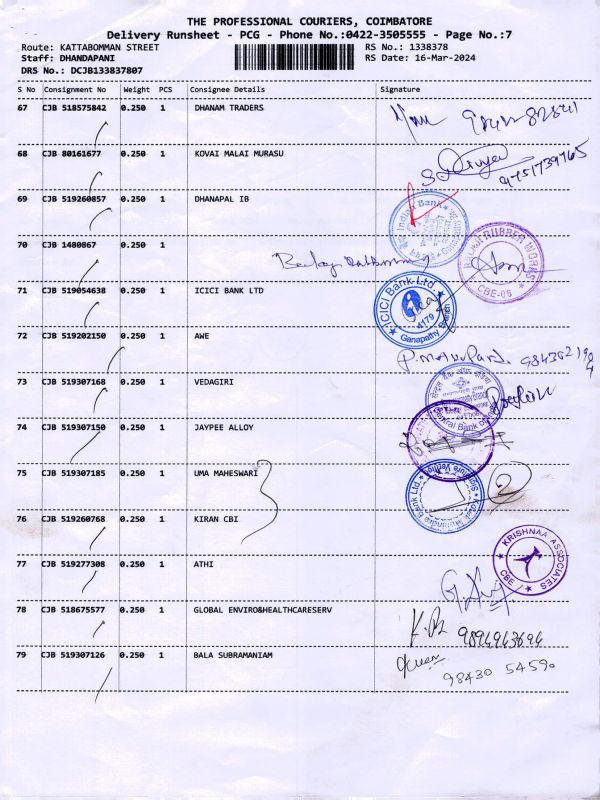 THE PROFESSIONAL COURIERS, COIMBATORE
Delivery Runsheet - PCG - Phone No.:0422-3505555 - Page No.:7
Route: KATTABOMMAN STREET RS No.: 1338378
Staff: DHANDAPANI RS Date: 16-Mar-2024
DRS No.: DCJB133837807
S No Consignment No Weight PCS Consignee Details Signature
67 CJB 518575842 0.250 1 DHANAM TRADERS
68 CJB 80161677 0.250 1 KOVAI MALAI MURASU
9751739765
69 CJB 519260857 0.250 1 DHANAPAL IB
Indian Bank
70 CJB 1480867 0.250 1
RUBBER WORKS
CBE-06
71 CJB 519054638 0.250 1 ICICI BANK LTD
ICICI Bank Ltd
4179
Ganapathy Branch
72 CJB 519202150 0.250 1 AWE
73 CJB 519307168 0.250 1 VEDAGIRI
Central Bank of
74 CJB 519307150 0.250 1 JAYPEE ALLOY
75 CJB 519307185 0.250 1 UMA MAHESWARI
Kotak Mahindra Bank Ltd. Signature Verified
2
76 CJB 519260768 0.250 1 KIRAN CBI
77 CJB 519277308 0.250 1 ATHI
KRISHNAA ASSOCIATES
CBE
78 CJB 518675577 0.250 1 GLOBAL ENVIRO&HEALTHCARESERV
9894963694
79 CJB 519307126 0.250 1 BALA SUBRAMANIAM
98430 54590